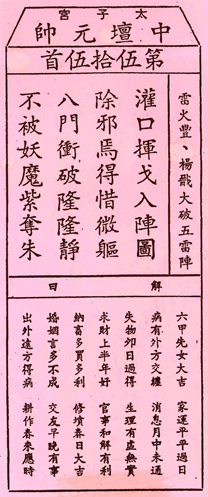 太子宮
中壇元帥
第伍拾伍首
雷火豐、楊戩大破五雷陣
灌口揮戈入陣圖
除邪焉得惜微軀
八門衝破隆隆靜
不被妖魔紫奪朱
解曰
六甲先女大吉 家運平平過日
病有外方交纏 消息月中未通
失物卯日過得 生理有虛無實
求財上半年好 官事和解有利
納畜多買多利 修墳春日大吉
婚姻言多不成 交友平晚有事
出外遠方得病 耕作春冬應時